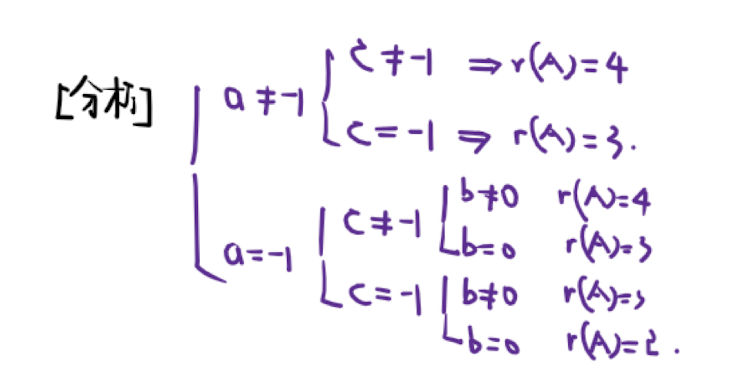 [分析]
a≠-1
c≠-1 ⇒ r(A)=4
c=-1 ⇒ r(A)=3.
a=-1
c≠-1
b≠0 r(A)=4
b=0 r(A)=3
c=-1
b≠0 r(A)=3
b=0 r(A)=2.